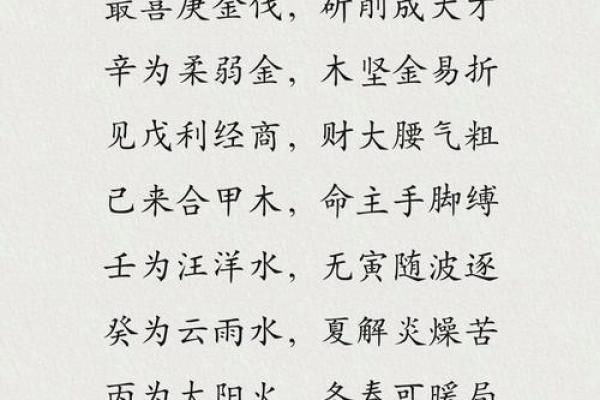 最喜庚金伐，斫削成大才
辛为柔弱金，木坚金易折
见戊利经商，财大腰气粗
己来合甲木，命主手脚缚
壬为汪洋水，无寅随波逐
癸为云雨水，夏解炎燥苦
丙为太阳火，冬春可暖局